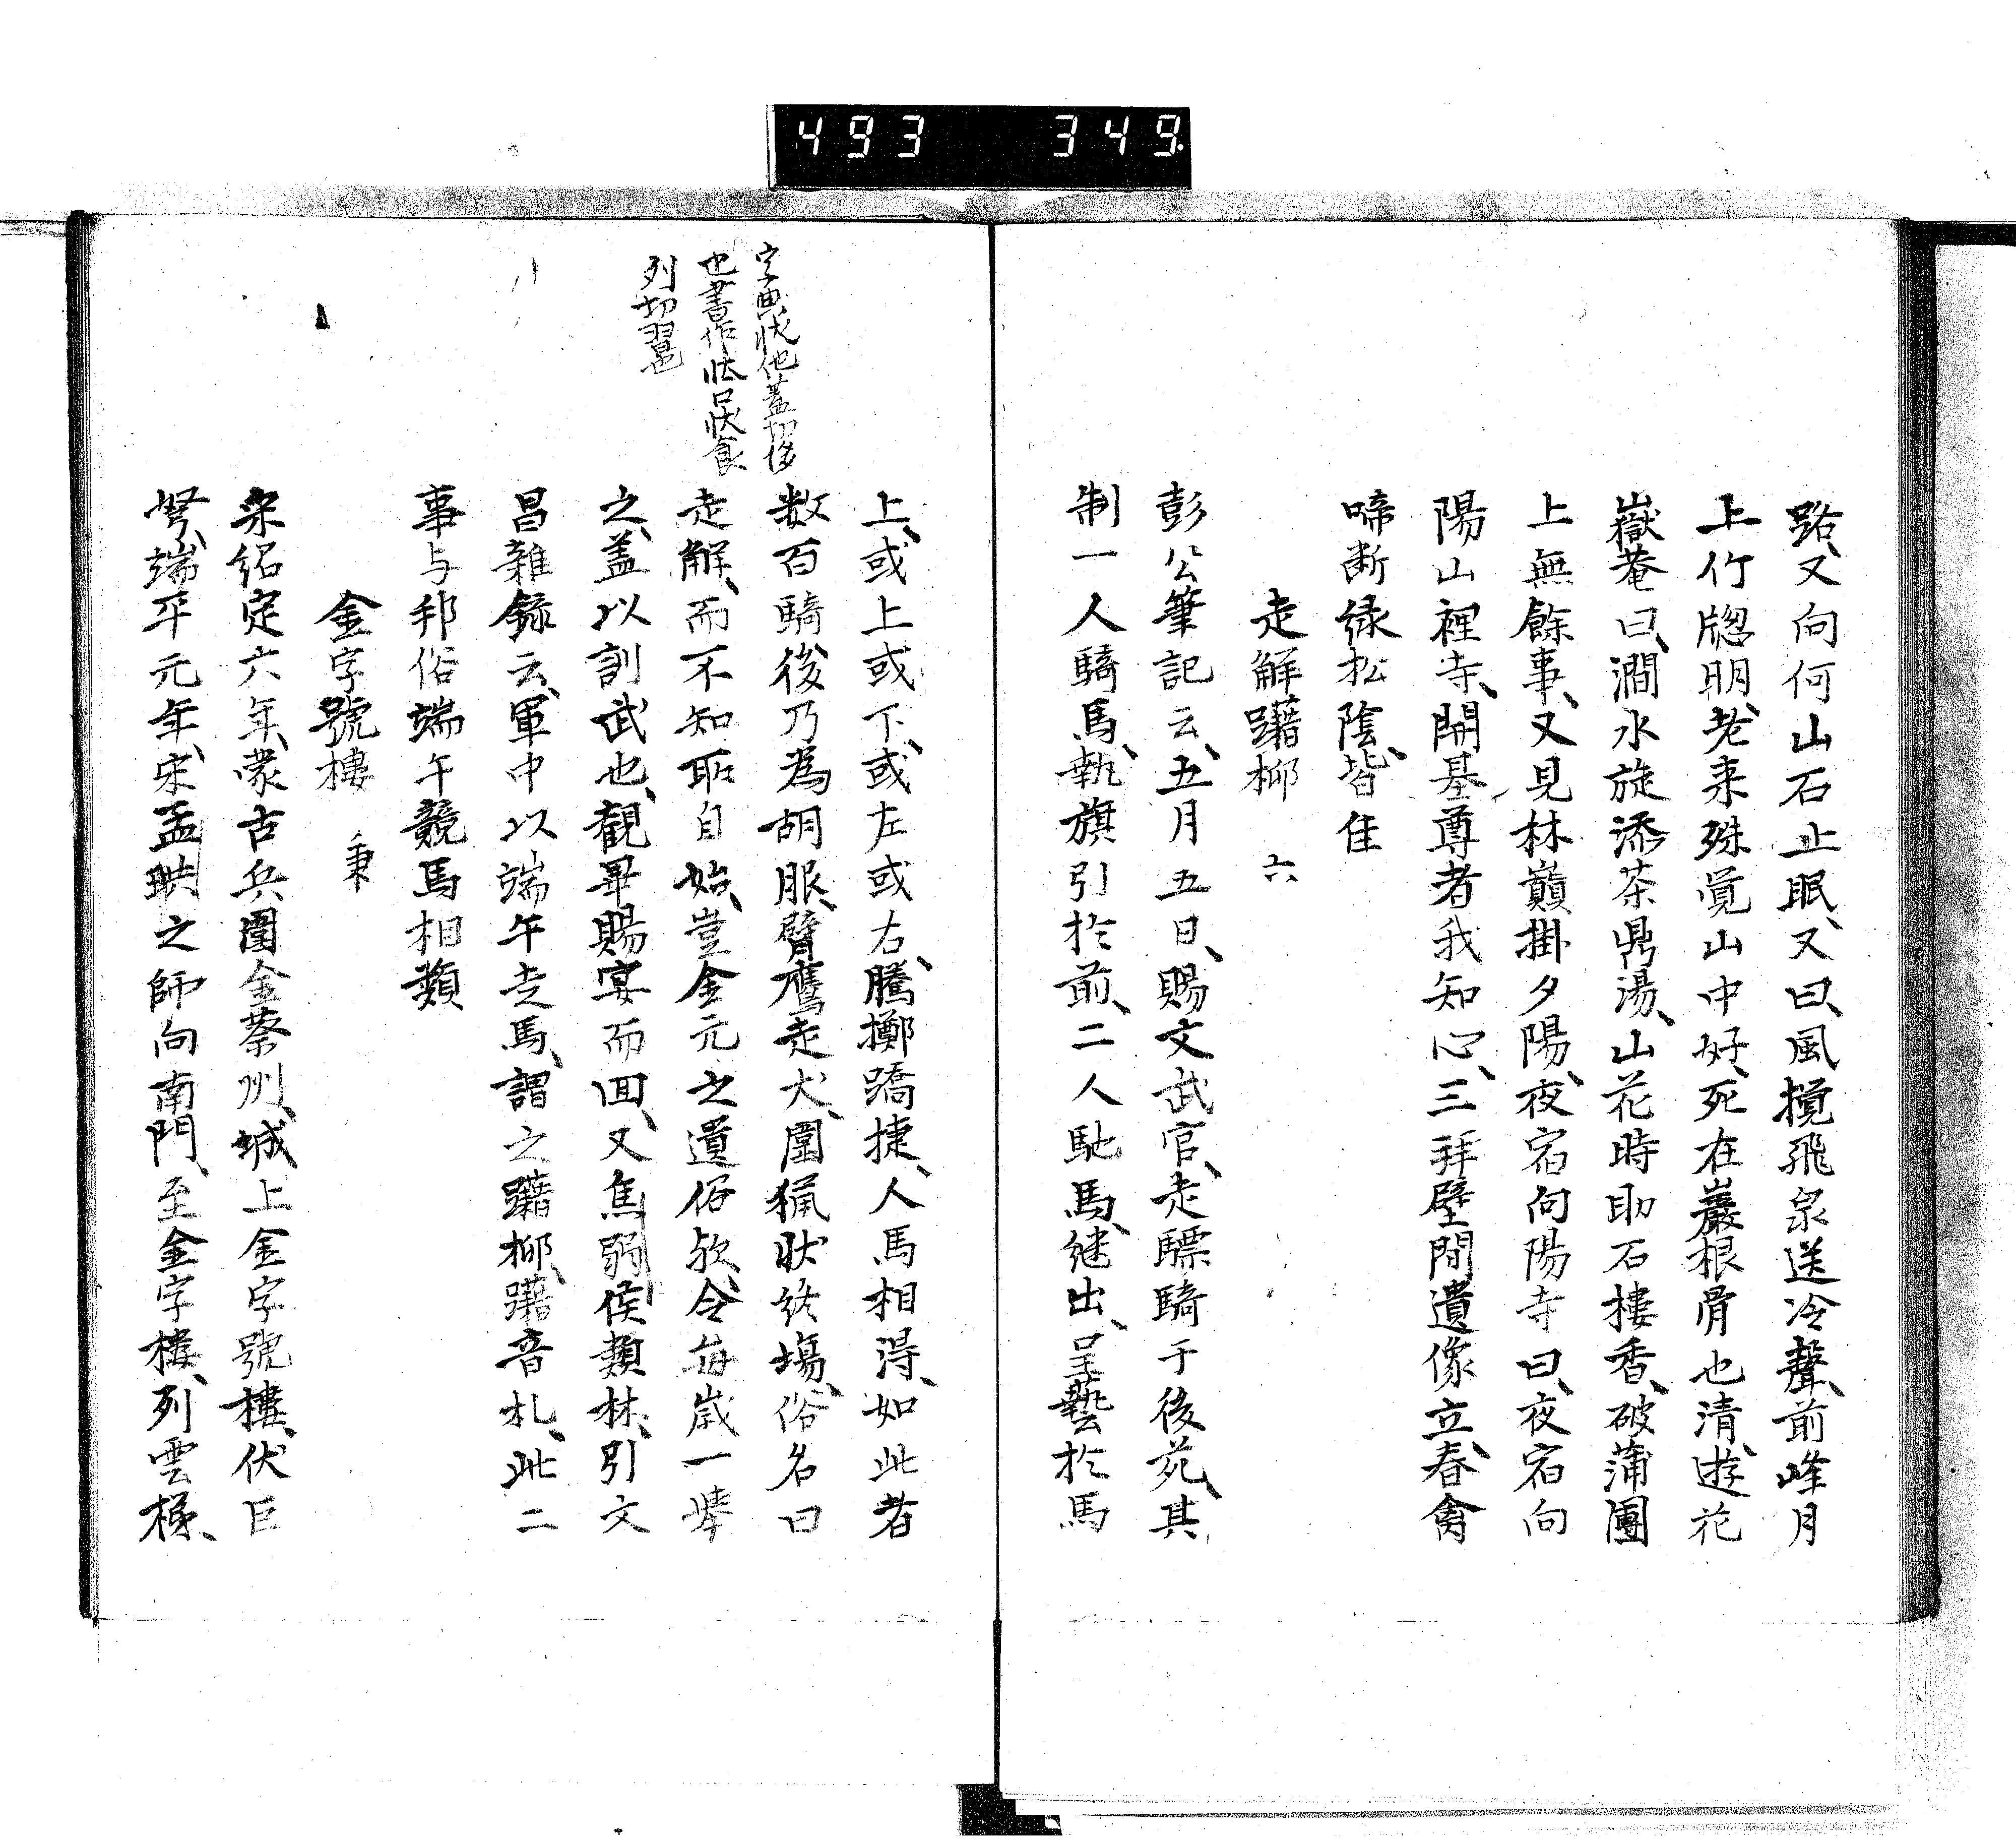 493 349
路、又向何山石止眠、又曰、風攪飛泉送冷聲、前峰月
上竹牕明、老来殊覚山中好、死在巖根骨也清、遊花
嶽菴曰、澗水旋添茶鼎湯、山花時助石樓香、破蒲團
上無餘事、又見林巔掛夕陽、夜宿向陽寺曰、夜宿向
陽山裡寺、開基尊者我知心、三拜壁間遺像立、春禽
啼断緑松陰、皆佳
走解躤柳 六
彭公筆記云、五月五日、賜文武官、走驃騎于後苑、其
制一人騎馬、執旗引於前、二人馳馬、継出、呈藝於馬
上、或上或下、或左或右、騰擲蹻捷、人馬相得、如此者
数百騎後乃為胡服、臂鷹走犬、圍猟状終場、俗名曰
走解、而不知所自始、豈金元之遺俗欤、今毎歳一舉
之、盖以訓武也、観畢賜宴而回、又焦弱侯類林、引文
昌雜録云、軍中以端午走馬、謂之躤柳、躤音札、此二
事与邦俗端午競馬相類
金字號樓 秉
宋紹定六年、蒙古兵圍金蔡州、城上金字號樓、伏巨
弩、端平元年、宋孟珙之師向南門、至金字樓、列雲梯、
字典忕他蓋切侈
也書作忲曰忕食
列切習也